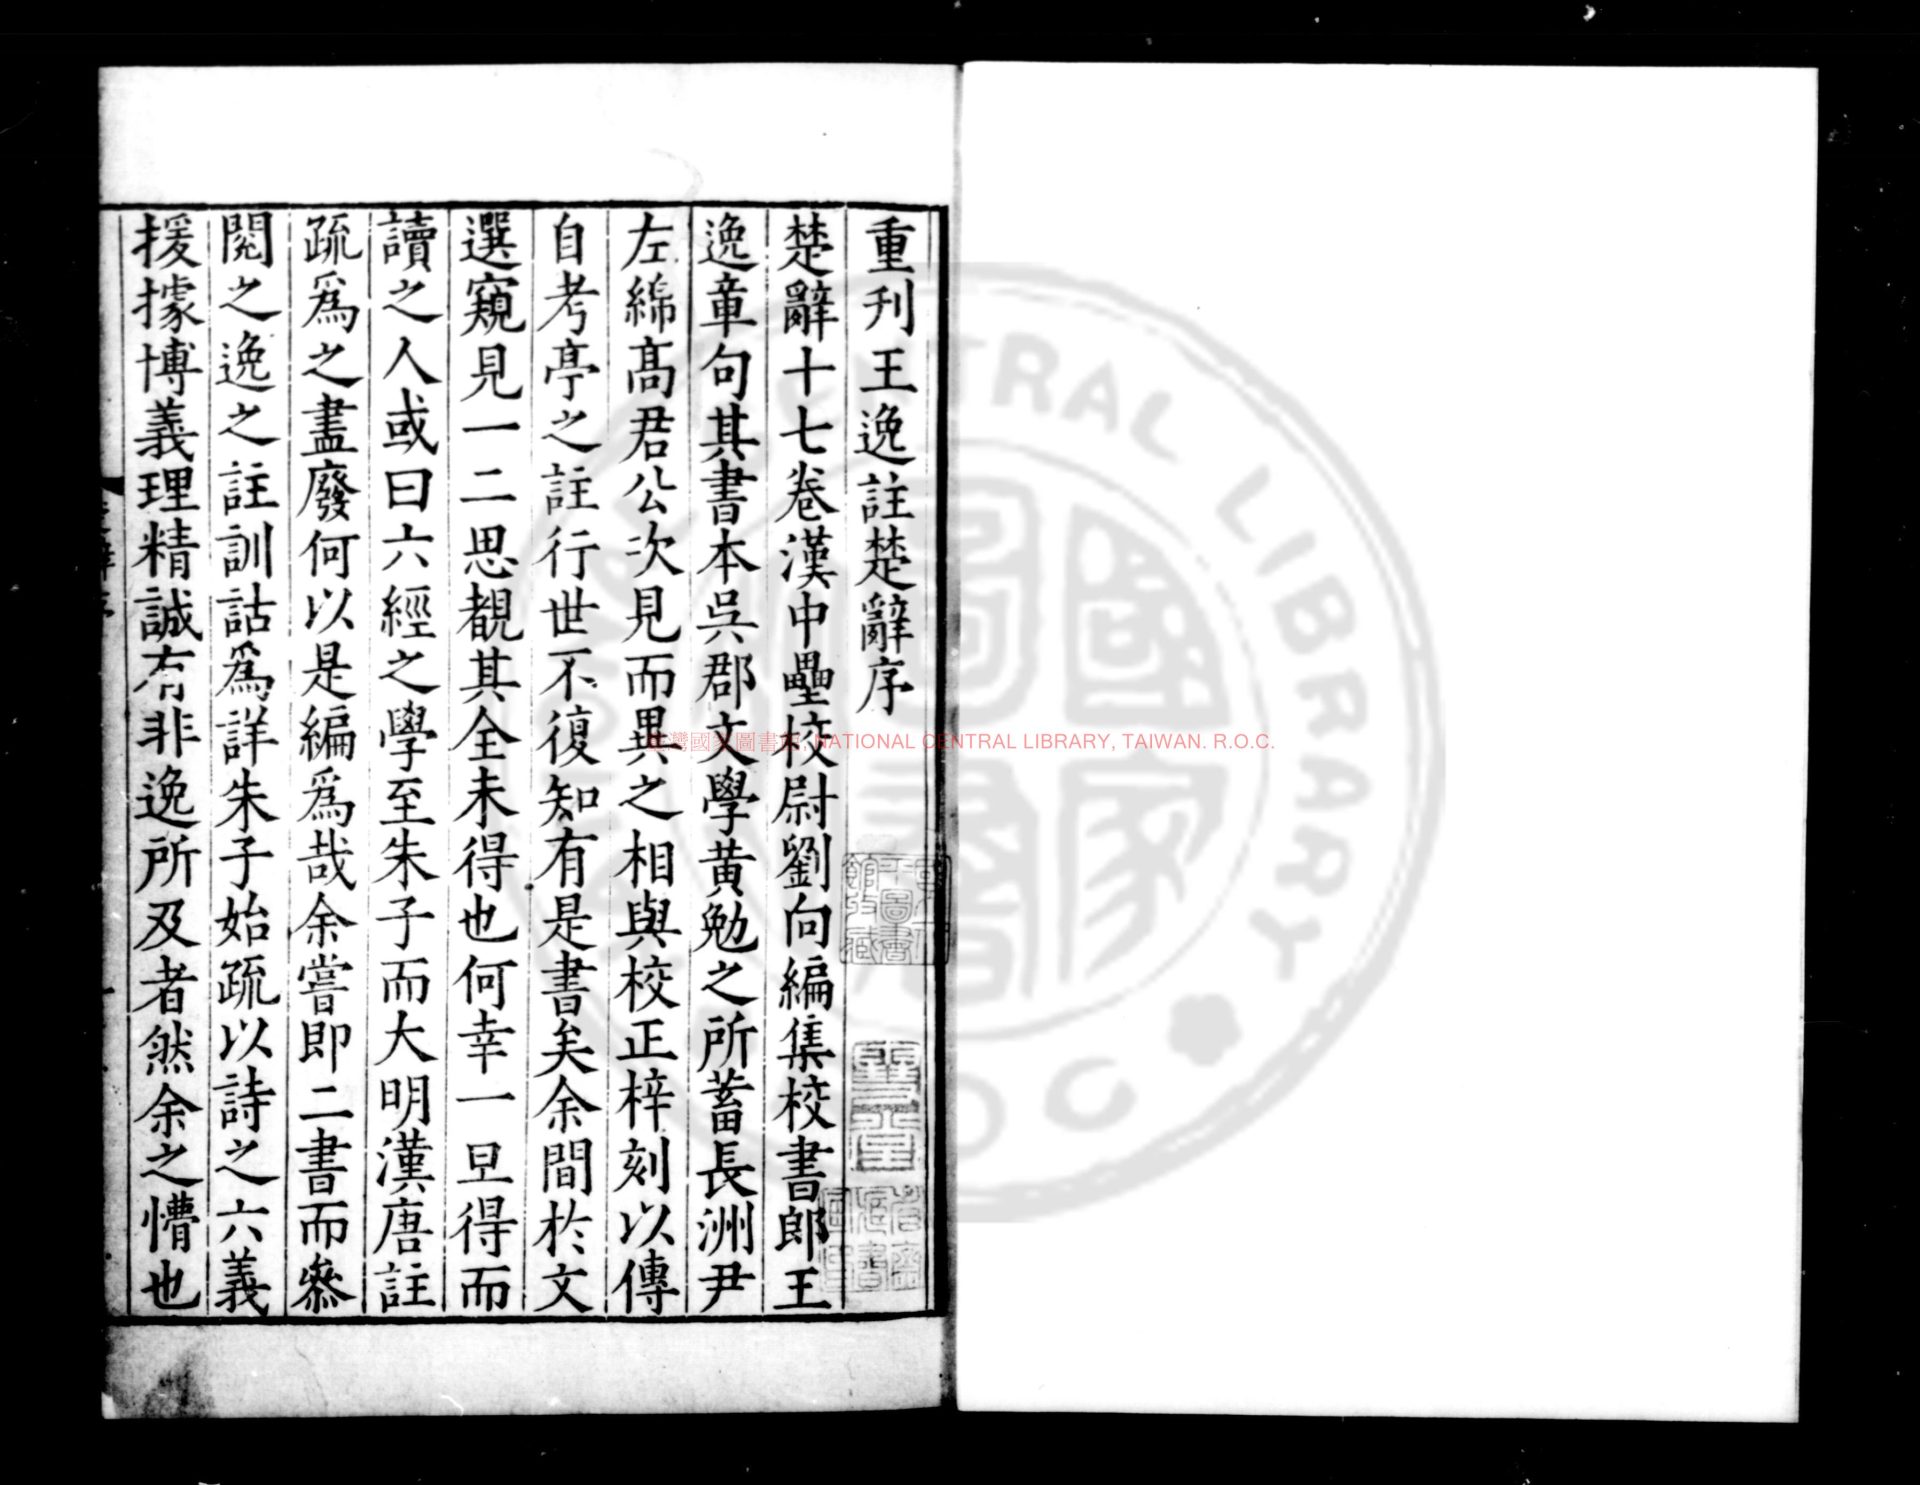 重刋王逸註楚辭序
楚辭十七卷漢中壘校尉劉向編集校書郎王
逸章句其書本吳郡文學黄勉之所蓄長洲尹
左綿髙君公次見而異之相與校正梓刻以傳
自考亭之註行世不復知有是書矣余間於文
選窺見一二思覩其全未得也何幸一旦得而
讀之人或曰六經之學至朱子而大明漢唐註
疏爲之盡廢何以是編爲哉余嘗即二書而叅
閱之逸之註訓詁爲詳朱子始疏以詩之六義
援據博義理精誠有非逸所及者然余之懵也
臺灣國家圖書館, NATIONAL CENTRAL LIBRARY, TAIWAN. R.O.C.
NATIONAL CENTRAL LIBRARY
R.O.C.
國家圖書